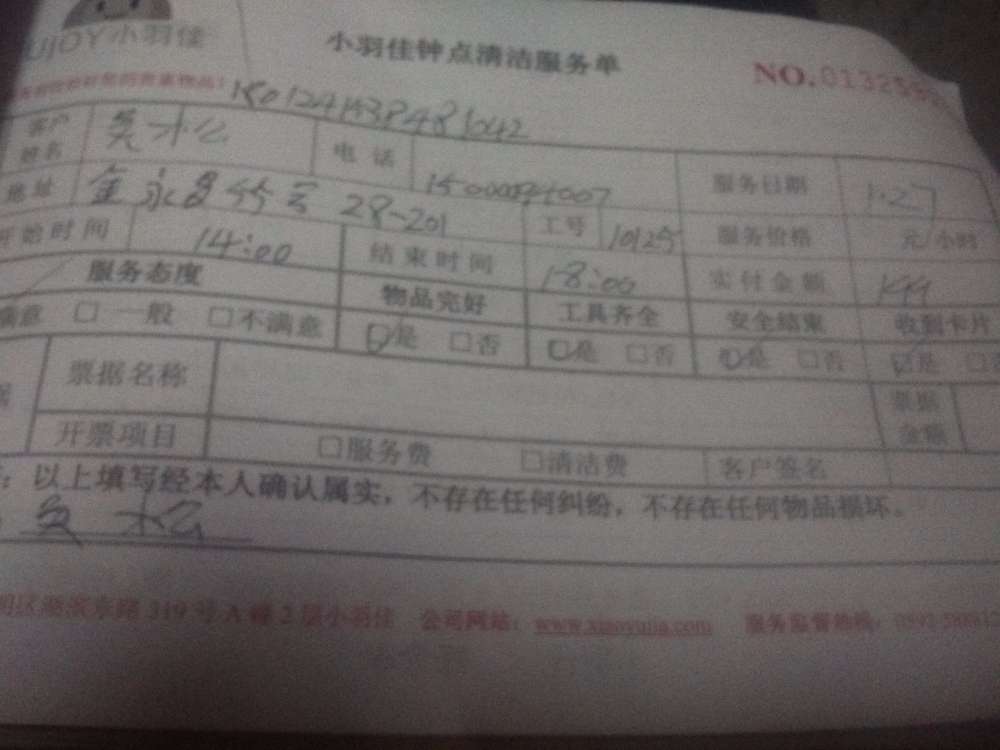 UJOY小羽佳
小羽佳钟点清洁服务单
NO.01325
客户姓名 吴松 电话 服务日期 1.27
地址 28-201 工号 10125 服务价格 元/小时
开始时间 14:00 结束时间 18:00 实付金额
服务态度 物品完好 工具齐全 安全结束 收到卡片
满意 □ 一般 □不满意 □是 □否 □是 □否 □是 □否 □是
票据名称 票据金额
开票项目 □服务费 □清洁费 客户签名
：以上填写经本人确认属实，不存在任何纠纷，不存在任何物品损坏。
吴松
湖滨东路319号A幢2层小羽佳 公司网站：www.xiaoyujia.com 服务监督热线：0592-